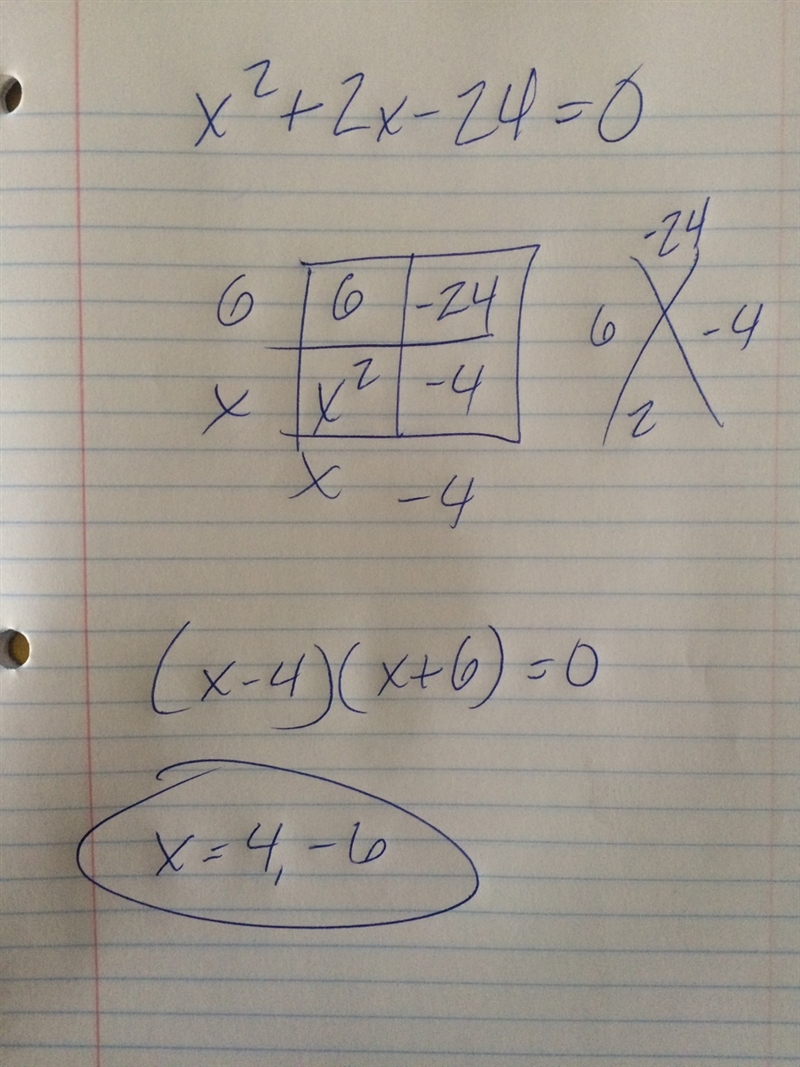 x²+2x-24=0
-24
6 6 -24 6 -4
x x² -4 2
x -4
(x-4)(x+6)=0
x=4,-6